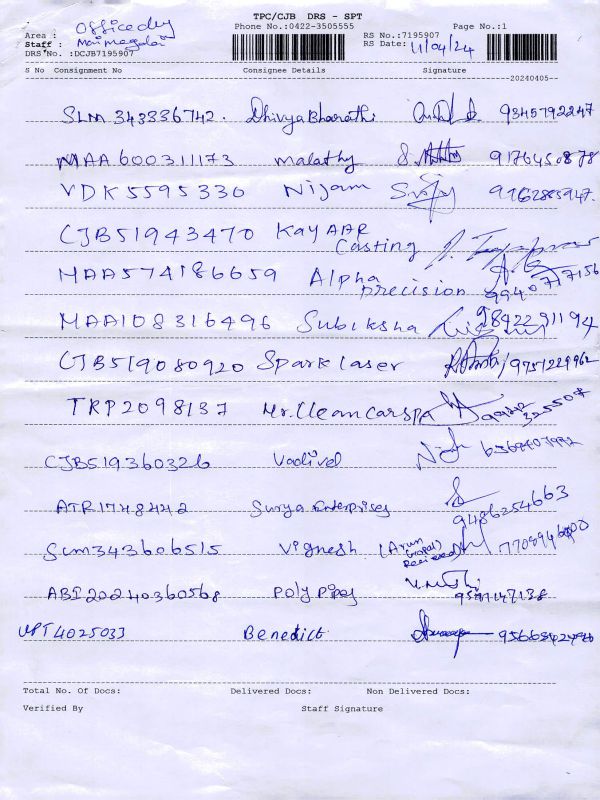 TPC/CJB DRS - SPT
Phone No.:0422-3505555 Page No.:1
Area : Office dly
Staff :
DRS No. :DCJB7195907
RS No.:7195907
RS Date: 11/04/24
S No Consignment No Consignee Details Signature
20240405
SLM 343336742. Dhivya Bharathi 9345792247
MAA 600311173 Malathy 9176450878
VDK5595330 Nijam
CJB51943470 Kay AAR
Casting
MAA574186659 Alpha
precision 9940717156
MAA108316496 Subiksha 9842291194
CJB519080920 Spark laser 9751229962
TRP2098137 Mr. Clean Car SPA
CJB519360326 Vadivel
ATR1748442 Surya Enterprises
9486254663
Scm343606515 Vignesh (Arun
Received)
ABI20240360568 Poly Pipes
VPT4025033 Benedict
Total No. Of Docs: Delivered Docs: Non Delivered Docs:
Verified By Staff Signature